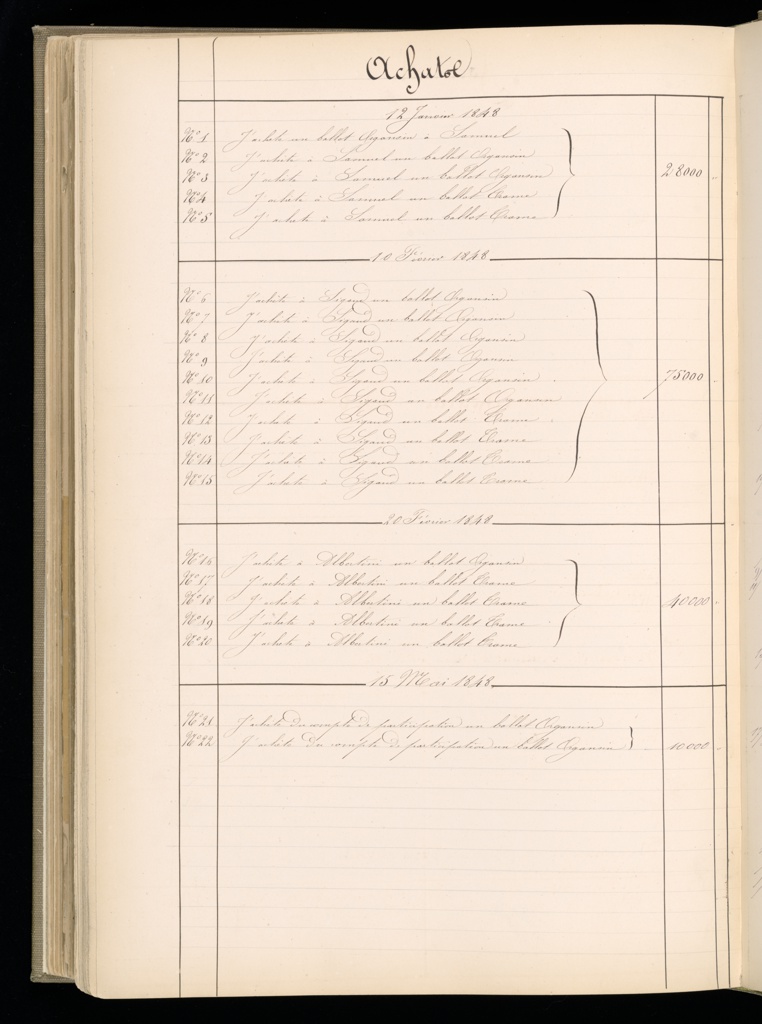 Achats
12 Janvier 1848
N° 1 J'achète un ballot Organsin à Samuel
N° 2 J'achète à Samuel un ballot Organsin
N° 3 J'achète à Samuel un ballot Organsin 28000
N° 4 J'achète à Samuel un ballot Trame
N° 5 J'achète à Samuel un ballot Trame
10 Février 1848
N° 6 J'achète à Sigaud un ballot Organsin
N° 7 J'achète à Sigaud un ballot Organsin
N° 8 J'achète à Sigaud un ballot Organsin
N° 9 J'achète à Sigaud un ballot Organsin
N° 10 J'achète à Sigaud un ballot Organsin 75000
N° 11 J'achète à Sigaud un ballot Organsin
N° 12 J'achète à Sigaud un ballot Trame
N° 13 J'achète à Sigaud un ballot Trame
N° 14 J'achète à Sigaud un ballot Trame
N° 15 J'achète à Sigaud un ballot Trame
20 Février 1848
N° 16 J'achète à Albertini un ballot Organsin
N° 17 J'achète à Albertini un ballot Trame
N° 18 J'achète à Albertini un ballot Trame 40000
N° 19 J'achète à Albertini un ballot Trame
N° 20 J'achète à Albertini un ballot Trame
15 Mai 1848
N° 21 J'achète du compte de participation un ballot Organsin
N° 22 J'achète du compte de participation un ballot Organsin 10000